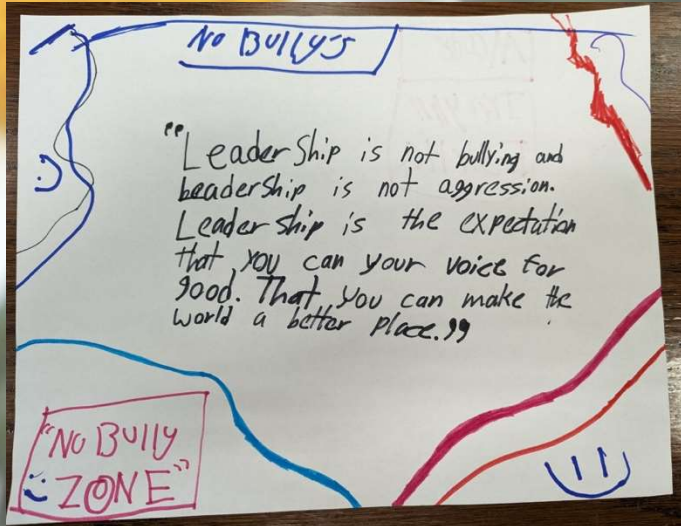 No BULLY'S
"Leader Ship is not bullying and
beadership is not aggression.
Leader ship is the expectation
that you can your voice for
good. That you can make the
world a better place."
"NO BULLY
ZONE"